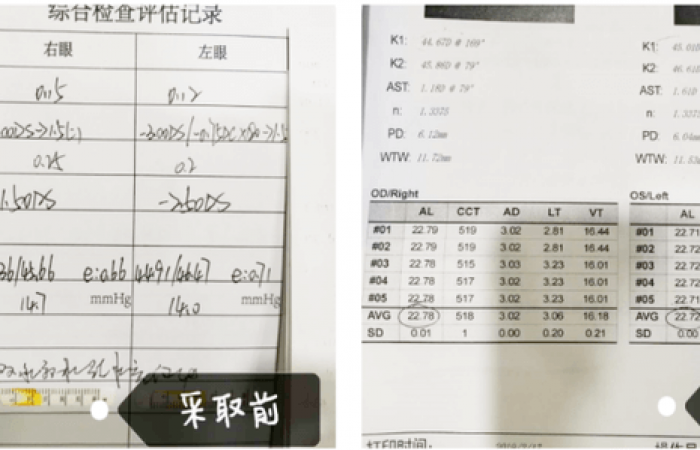 综合检查评估记录
右眼 左眼
0.15 0.12
-3.00DS/-0.75DC×80→1.5
0.25 0.2
1.50DS -2.50DS
/43.66 e:0.66 44.91/46.47 e:0.71
mmHg mmHg
14.7 14.0
采取前
K1: 44.67D @ 169°
K2: 45.86D @ 79°
AST: 1.18D @ 79°
n: 1.3375
PD: 6.12mm
WTW: 11.72mm
K1: 45.01D
K2: 46.61D
AST: 1.61D
n: 1.3375
PD: 6.04mm
WTW: 11.53m
OD/Right
AL CCT AD LT VT
#01 22.79 519 3.02 2.81 16.44
#02 22.79 519 3.02 2.81 16.44
#03 22.78 515 3.03 3.23 16.01
#04 22.78 517 3.02 3.23 16.01
#05 22.78 517 3.02 3.23 16.01
AVG 22.78 518 3.02 3.06 16.18
SD 0.01 1 0.00 0.20 0.21
OS/Left
AL
#01 22.71
#02 22.72
#03 22.72
#04 22.72
#05 22.71
AVG 22.72
SD 0.00
打印时间:
操作员